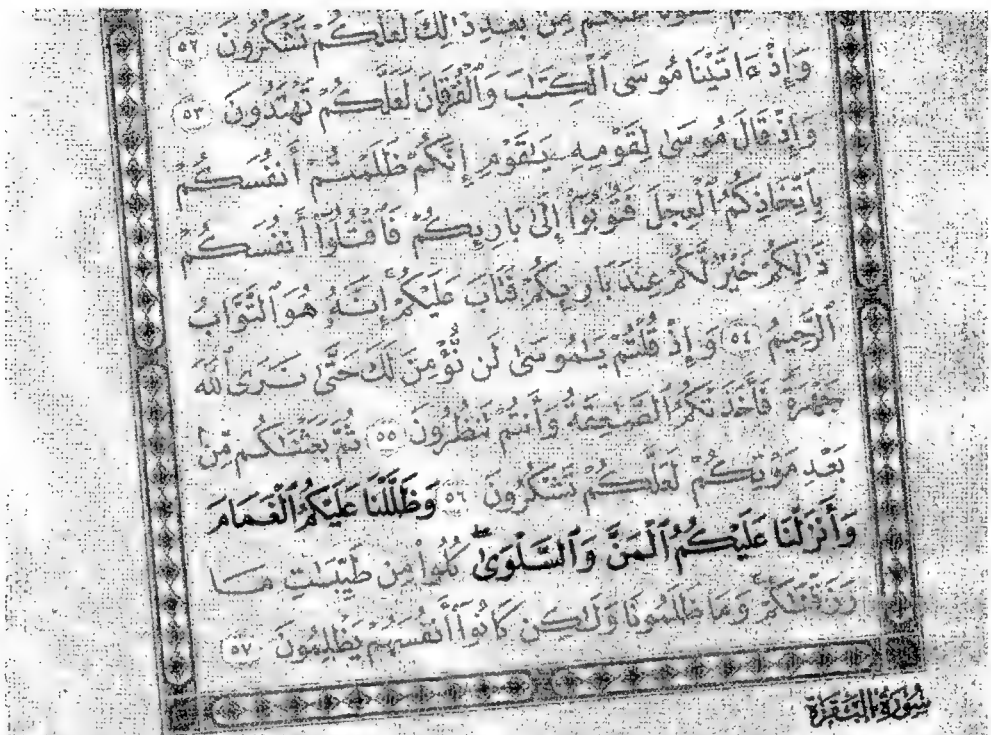 عَفَوْنَا عَنكُم مِّنۢ بَعْدِ ذَٰلِكَ لَعَلَّكُمْ تَشْكُرُونَ ٥٢
وَإِذْ ءَاتَيْنَا مُوسَى ٱلْكِتَٰبَ وَٱلْفُرْقَانَ لَعَلَّكُمْ تَهْتَدُونَ ٥٣
وَإِذْ قَالَ مُوسَىٰ لِقَوْمِهِۦ يَٰقَوْمِ إِنَّكُمْ ظَلَمْتُمْ أَنفُسَكُم
بِٱتِّخَاذِكُمُ ٱلْعِجْلَ فَتُوبُوٓا۟ إِلَىٰ بَارِئِكُمْ فَٱقْتُلُوٓا۟ أَنفُسَكُمْ
ذَٰلِكُمْ خَيْرٌ لَّكُمْ عِندَ بَارِئِكُمْ فَتَابَ عَلَيْكُمْ إِنَّهُۥ هُوَ ٱلتَّوَّابُ
ٱلرَّحِيمُ ٥٤ وَإِذْ قُلْتُمْ يَٰمُوسَىٰ لَن نُّؤْمِنَ لَكَ حَتَّىٰ نَرَى ٱللَّهَ
جَهْرَةً فَأَخَذَتْكُمُ ٱلصَّٰعِقَةُ وَأَنتُمْ تَنظُرُونَ ٥٥ ثُمَّ بَعَثْنَٰكُم مِّنۢ
بَعْدِ مَوْتِكُمْ لَعَلَّكُمْ تَشْكُرُونَ ٥٦ وَظَلَّلْنَا عَلَيْكُمُ ٱلْغَمَامَ
وَأَنزَلْنَا عَلَيْكُمُ ٱلْمَنَّ وَٱلسَّلْوَىٰ ۖ كُلُوا۟ مِن طَيِّبَٰتِ مَا
رَزَقْنَٰكُمْ ۖ وَمَا ظَلَمُونَا وَلَٰكِن كَانُوٓا۟ أَنفُسَهُمْ يَظْلِمُونَ ٥٧
سُورَةُ ٱلْبَقَرَة